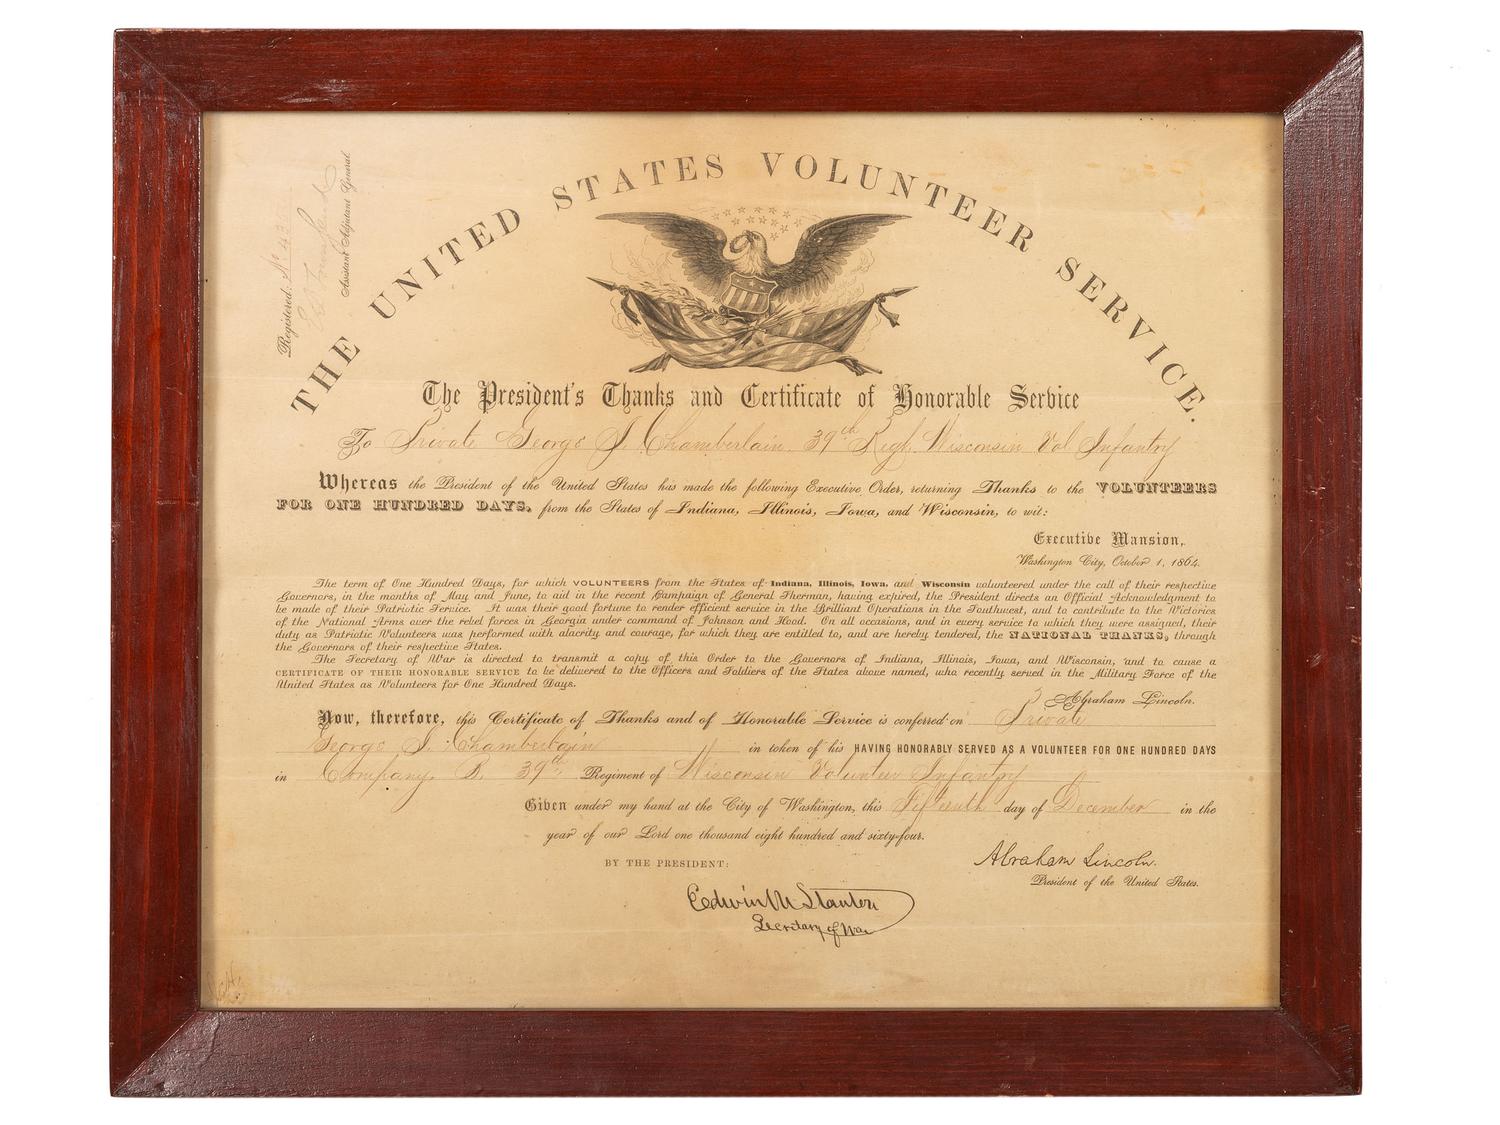 THE UNITED STATES VOLUNTEER SERVICE.
Registered: No 43
Assistant Adjutant General.
The President's Thanks and Certificate of Honorable Service
To Private George J. Chamberlain. 39th Regt. Wisconsin Vol Infantry
Whereas the President of the United States has made the following Executive Order, returning Thanks to the VOLUNTEERS
FOR ONE HUNDRED DAYS, from the States of Indiana, Illinois, Iowa, and Wisconsin, to wit:
Executive Mansion,
Washington City, October 1, 1864.
The term of One Hundred Days, for which VOLUNTEERS from the States of Indiana, Illinois, Iowa, and Wisconsin volunteered under the call of their respective
Governors, in the months of May and June, to aid in the recent Campaign of General Sherman, having expired, the President directs an Official Acknowledgment to
be made of their Patriotic Service. It was their good fortune to render efficient service in the Brilliant Operations in the Southwest, and to contribute to the Victories
of the National Arms over the rebel forces in Georgia under command of Johnson and Hood. On all occasions, and in every service to which they were assigned, their
duty as Patriotic Volunteers was performed with alacrity and courage, for which they are entitled to, and are hereby tendered, the NATIONAL THANKS, through
the Governors of their respective States.
The Secretary of War is directed to transmit a copy of this Order to the Governors of Indiana, Illinois, Iowa, and Wisconsin, and to cause a
CERTIFICATE OF THEIR HONORABLE SERVICE to be delivered to the Officers and Soldiers of the States above named, who recently served in the Military Force of the
United States as Volunteers for One Hundred Days.
Abraham Lincoln.
Now, therefore, this Certificate of Thanks and of Honorable Service is conferred on Private
George J. Chamberlain in token of his HAVING HONORABLY SERVED AS A VOLUNTEER FOR ONE HUNDRED DAYS
in Company B. 39th Regiment of Wisconsin Volunteer Infantry
Given under my hand at the City of Washington, this Fifteenth day of December in the
year of our Lord one thousand eight hundred and sixty-four.
Abraham Lincoln.
BY THE PRESIDENT:
President of the United States.
Edwin M Stanton
Secretary of War